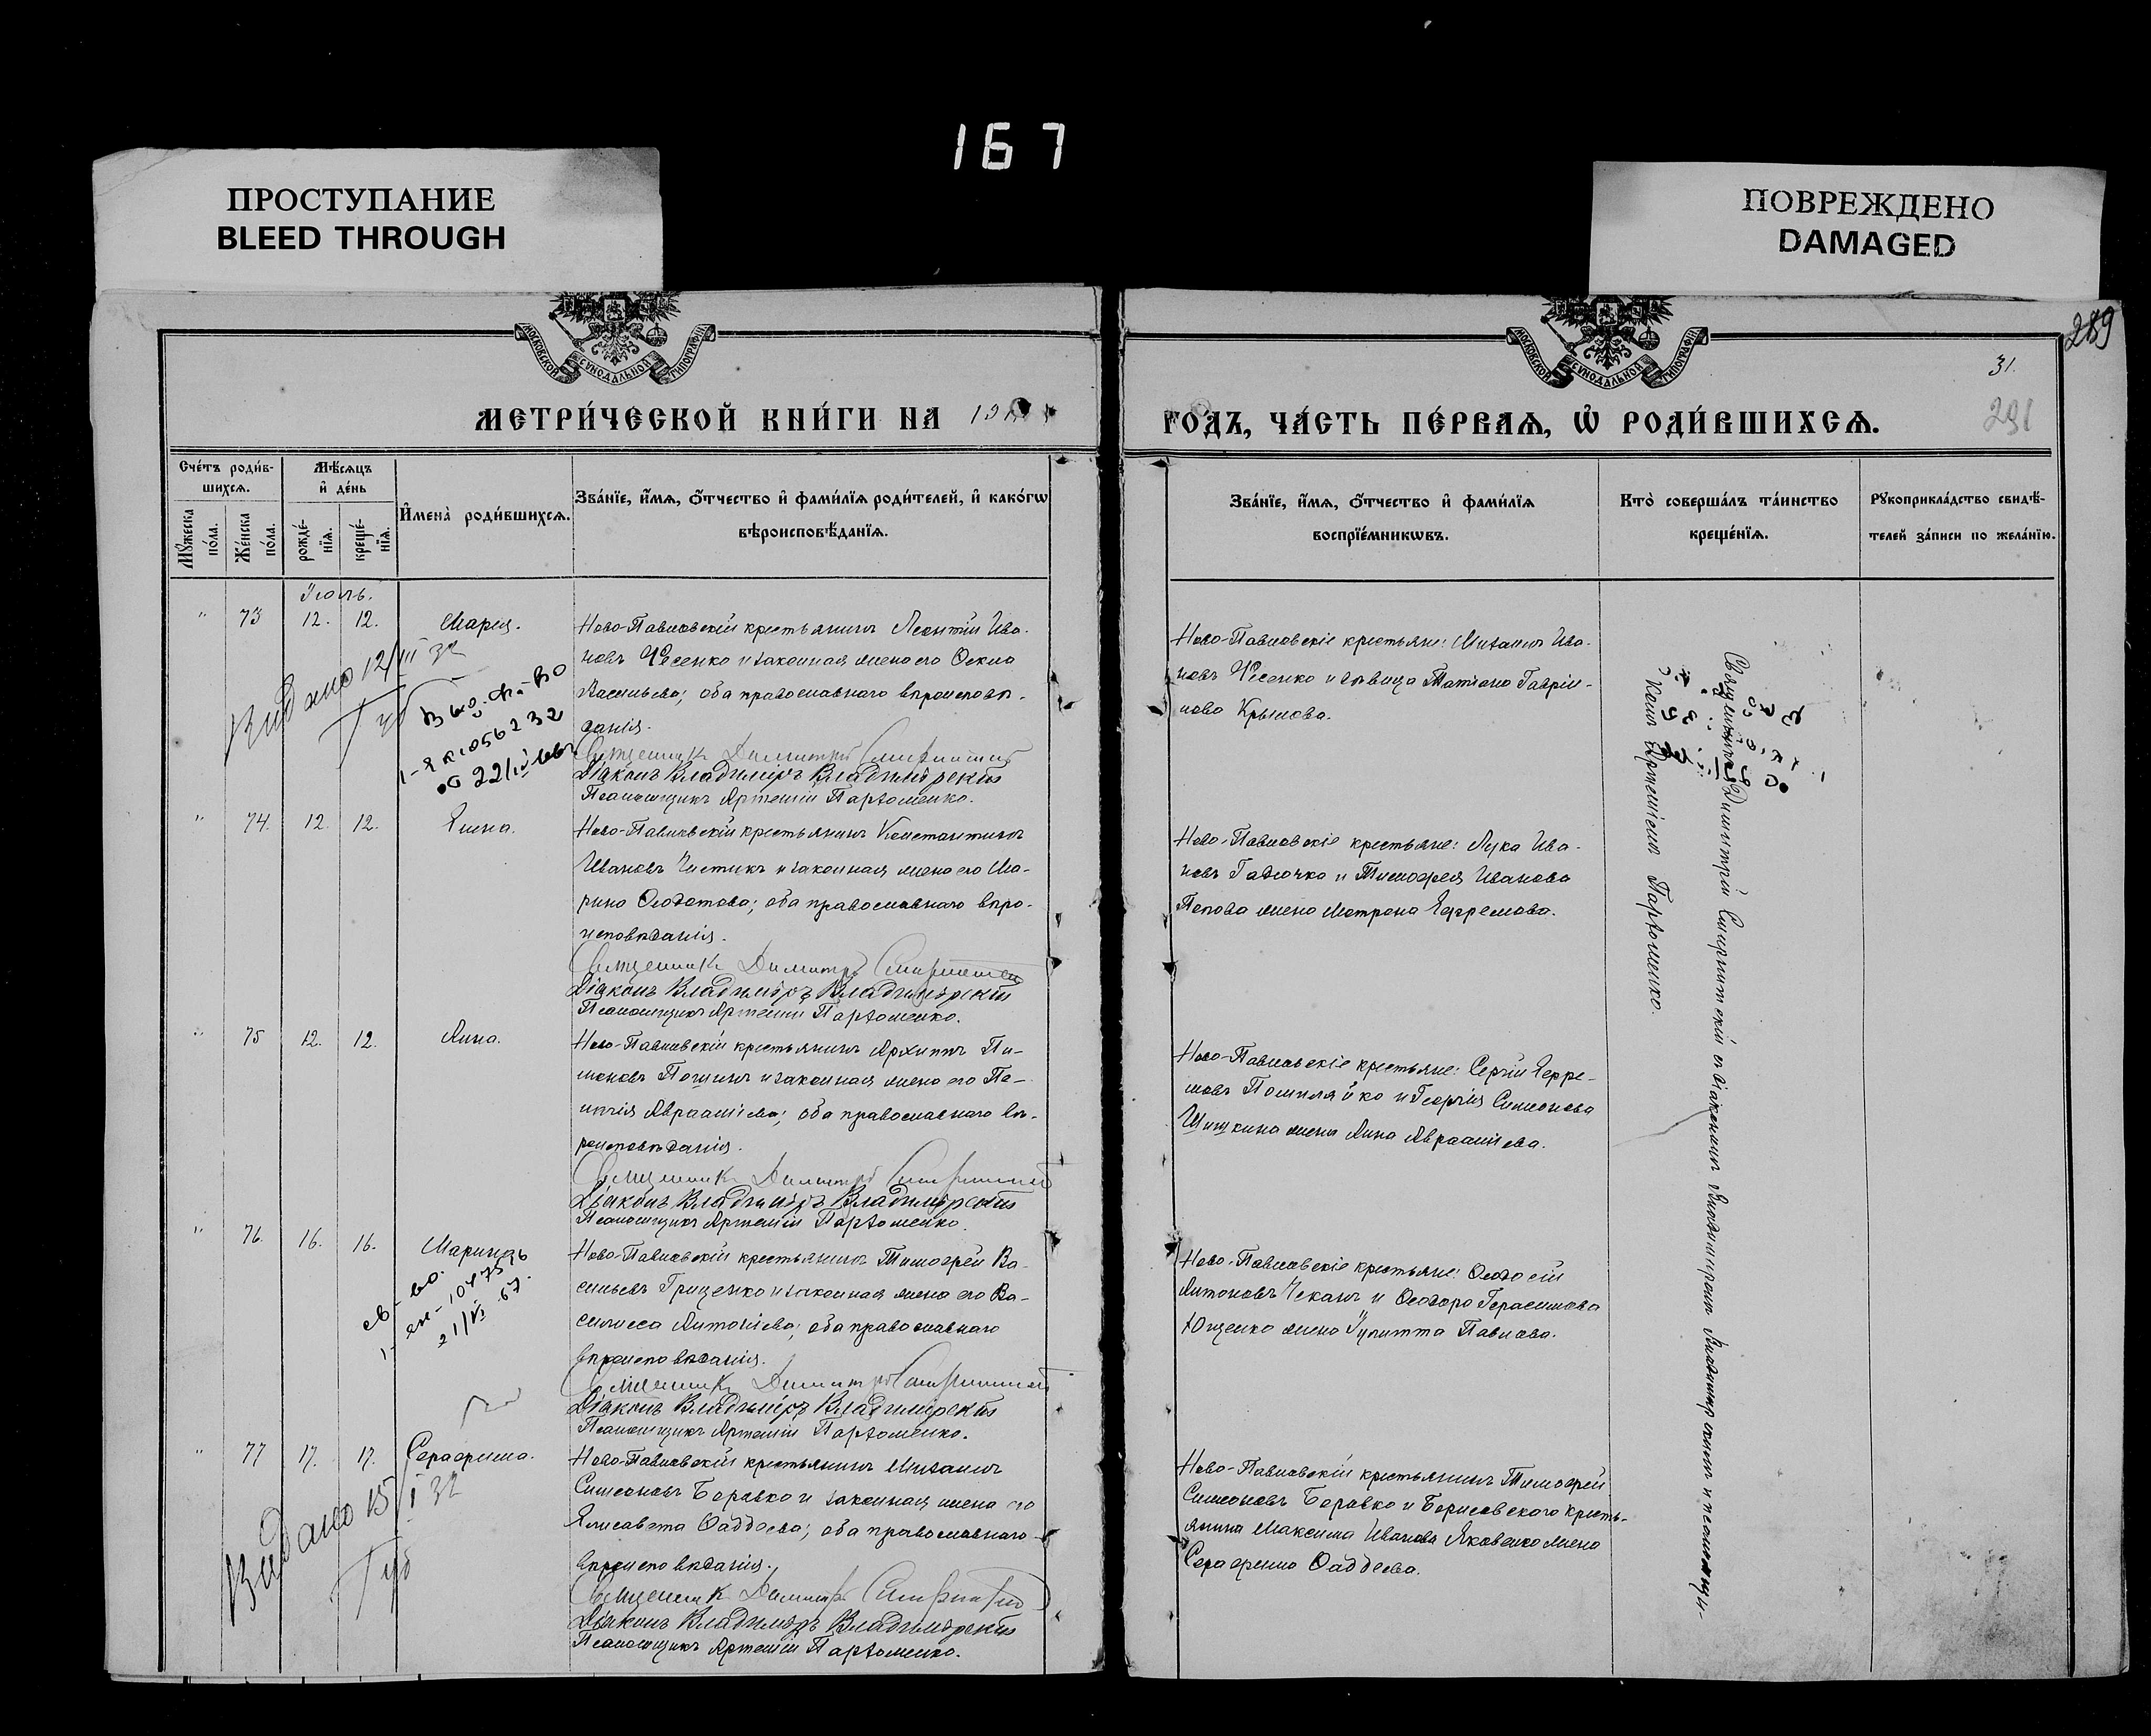 167
ПРОСТУПАНИЕ
BLEED THROUGH
ПОВРЕЖДЕНО
DAMAGED
289
МОСКОВСКОЙ СУНОДАЛЬНОЙ ТИПОГРАФІИ
МОСКОВСКОЙ СУНОДАЛЬНОЙ ТИПОГРАФІИ
31.
291
МЕТРИ́ЧЕСКОЙ КНИ́ГИ НА 191
ГО́ДЪ, ЧА́СТЬ ПЕ́РВАѦ, Ѡ҆ РОДИ́ВШИХСѦ.
Сче́тъ роди́в-
шихсѧ.
Мѣ́сѧцъ
и҆ де́нь
Мꙋ́жеска
по́ла.
Же́нска
по́ла.
рожде́-
нїѧ.
креще́-
нїѧ.
И҆мена̀ роди́вшихсѧ.
Зва́нїе, и҆́мѧ, ѻ҆́тчество и҆ фами́лїѧ роди́телей, и҆ како́гѡ
вѣроисповѣ́данїѧ.
Зва́нїе, и҆́мѧ, ѻ҆́тчество и҆ фами́лїѧ
воспрїе́мникѡвъ.
Кто̀ соверша́лъ та́инство
креще́нїѧ.
Рꙋкоприкла́дство свидѣ́-
телей за́писи по жела́нїю.
Іюль.
" 73 12. 12. Марія.
Ново-Павловскій крестьянинъ Леонтій Ива-
новъ Чесенко и законная жена его Ѳекла
Васильева; оба православнаго вѣроисповѣ-
данія.
Священникъ Димитрій
Діаконъ Владиміръ Владимірскій
Псаломщикъ Артемій Пархоменко.
Ново-Павловскіе крестьяне: Михаилъ Ива-
новъ Чесенко и дѣвица Татіана Гаврии-
лова Крылова.
Видано 12/III 32
Выд. св-во
1-ЯК 1056232
22/IV
Священникъ Димитрій
съ діакономъ Владиміромъ Владимірскимъ и псаломщи-
комъ Артеміемъ Пархоменко.
" 74. 12. 12. Елена.
Ново-Павловскій крестьянинъ Константинъ
Ивановъ Чистикъ и законная жена его Ма-
рина Ѳеодотова; оба православнаго вѣро-
исповѣданія.
Священникъ Димитрій
Діаконъ Владиміръ Владимірскій
Псаломщикъ Артемій Пархоменко.
Ново-Павловскіе крестьяне: Лука Ива-
новъ Гадючка и Тимофея Иванова
Попова жена Матрона Ефремова.
" 75 12. 12. Анна.
Ново-Павловскій крестьянинъ Архиппъ
и законная жена его Пе-
лагія Авраамiева; оба православнаго вѣ-
роисповѣданія.
Священникъ Димитрій
Діаконъ Владиміръ Владимірскій
Псаломщикъ Артемій Пархоменко.
Ново-Павловскіе крестьяне: Сергій Ефре-
мовъ и Георгія Симеонова
Шишкина жена Анна Авраамiева.
" 76. 16. 16. Марина
Ново-Павловскій крестьянинъ Тимофей Ва-
сильевъ Гриценко и законная жена его Ва-
силисса Антоніева; оба православнаго
вѣроисповѣданія.
Священникъ Димитрій
Діаконъ Владиміръ Владимірскій
Псаломщикъ Артемій Пархоменко.
Ново-Павловскіе крестьяне: Ѳеодосій
Антоновъ Чеканъ и Ѳеодора Герасимова
Ющенко жена Іулитта Павлова.
св-во.
21/VI-67.
" 77 17. 17. Серафима.
Ново-Павловскій крестьянинъ Михаилъ
Симеоновъ Боровко и законная жена его
Елисавета Ѳаддеева; оба православнаго
вѣроисповѣданія.
Священникъ Димитрій
Діаконъ Владиміръ Владимірскій
Псаломщикъ Артемій Пархоменко.
Ново-Павловскій крестьянинъ Тимофей
Симеоновъ Боровко и Борисовскаго кресть-
янина Максима Иванова Яковенко жена
Серафима Ѳаддеева.
Видано 15/I 32